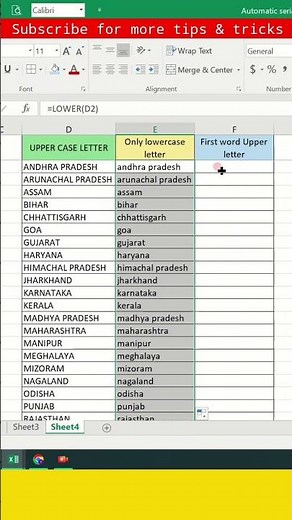 Automatic seria
Subscribe for more tips & tricks
Calibri
11
Wrap Text
General
B I U
Merge & Center
Font
Alignment
=LOWER(D2)
C D E F
UPPER CASE LETTER Only lowercase letter First word Upper letter
ANDHRA PRADESH andhra pradesh
ARUNACHAL PRADESH arunachal pradesh
ASSAM assam
BIHAR bihar
CHHATTISGARH chhattisgarh
GOA goa
GUJARAT gujarat
HARYANA haryana
HIMACHAL PRADESH himachal pradesh
JHARKHAND jharkhand
KARNATAKA karnataka
KERALA kerala
MADHYA PRADESH madhya pradesh
MAHARASHTRA maharashtra
MANIPUR manipur
MEGHALAYA meghalaya
MIZORAM mizoram
NAGALAND nagaland
ODISHA odisha
PUNJAB punjab
RAJASTHAN rajasthan
Sheet3 Sheet4